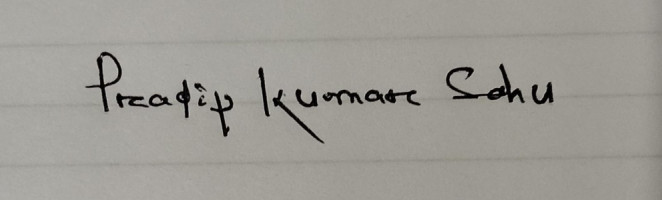 Pradip Kumar Sahu